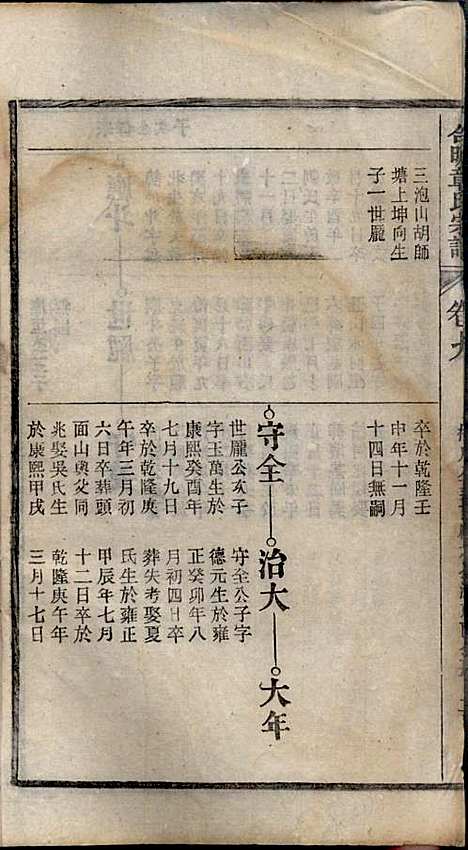 章氏宗譜
卷九
三泡山胡師
塘上坤向生
子一世龎
卒於乾隆壬
申年十一月
十四日無嗣
守全
世龎公次子
字玉萬生於
康熙癸酉年
七月十九日
卒於乾隆庚
午年三月初
六日卒葬頭
面山與父同
兆娶吳氏生
於康熙甲戌
治大
守全公子字
德元生於雍
正癸卯年八
月初四日卒
葬失考娶夏
氏生於雍正
甲辰年七月
十二日卒於
乾隆庚午年
三月十七日
大年